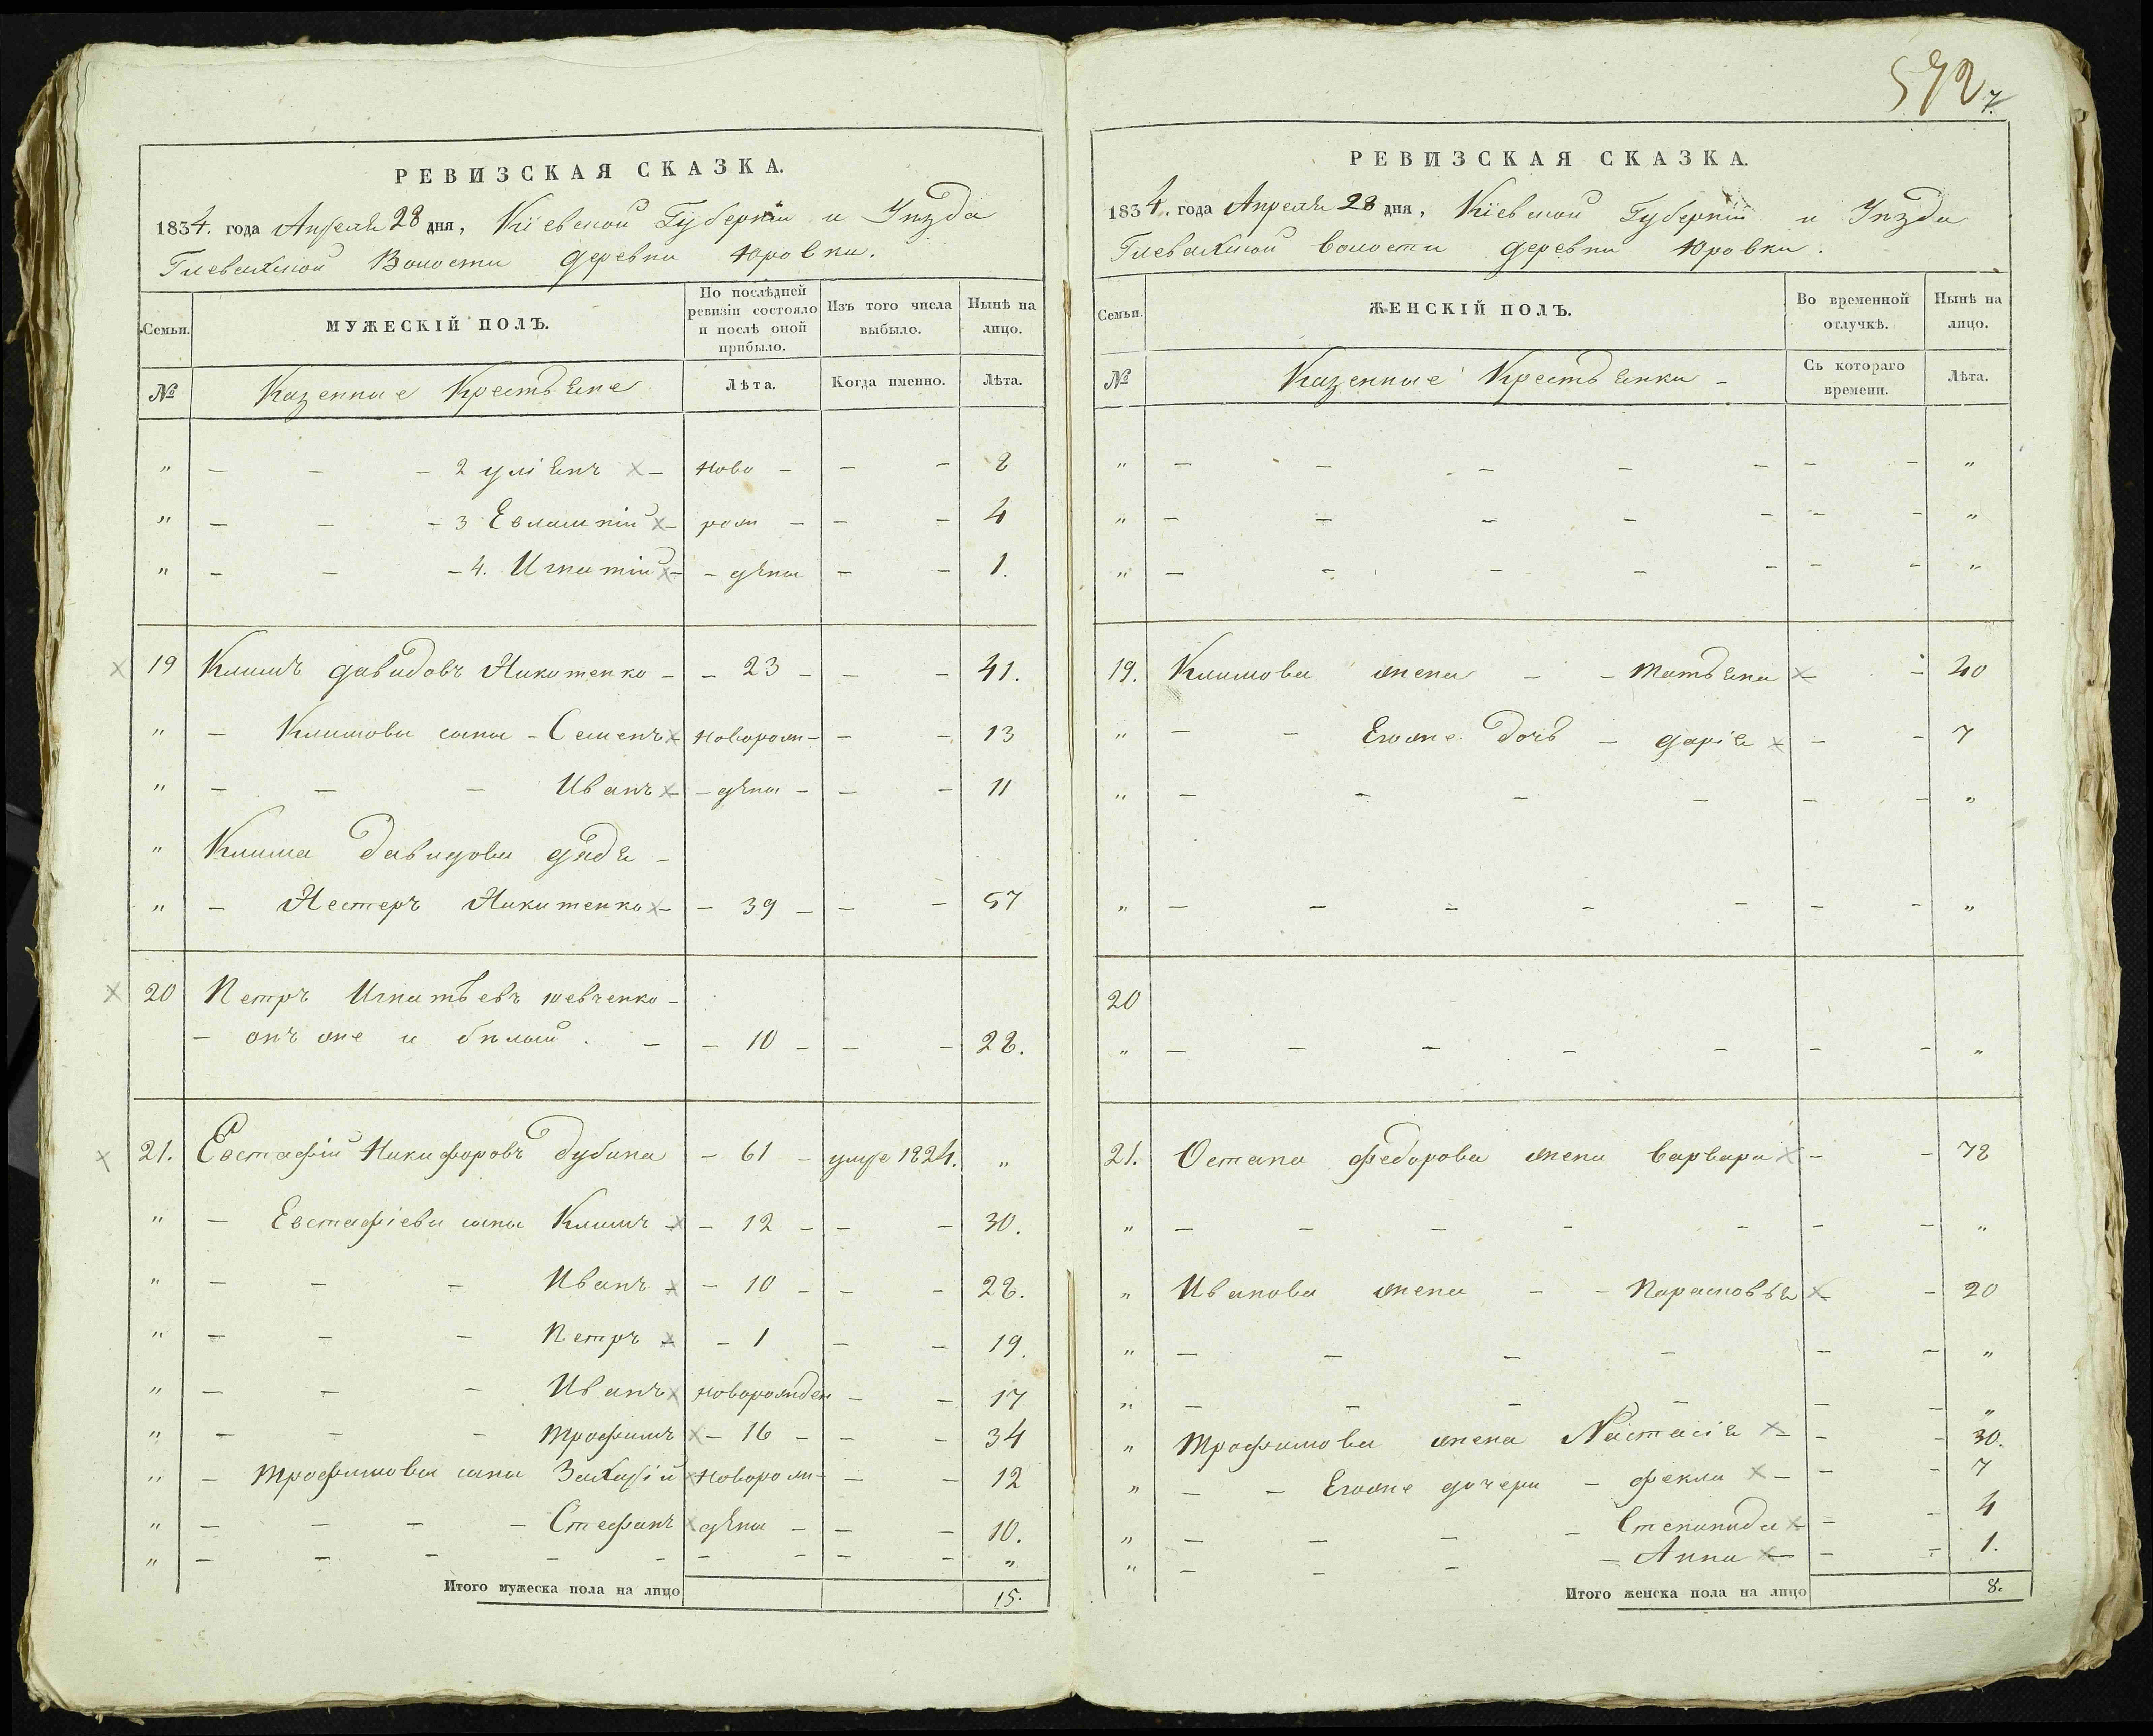 572
7.
РЕВИЗСКАЯ СКАЗКА.
1834. года Апреля 28 дня, Кіевской Губерніи и Уѣзда
Глевахской Волости деревни Юровки.
Семьи. МУЖЕСКІЙ ПОЛЪ. По послѣдней ревизіи состояло и послѣ оной прибыло. Изъ того числа выбыло. Нынѣ на лицо.
№ Казенные Крестьяне Лѣта. Когда именно. Лѣта.
" — — — 2 уліянъ × — ново — — — 8
" — — — 3 Евлампій × — рож — — — 4
" — — — 4. Игнатій × — — дѣны — — 1.
× 19 Климъ давидовъ Никитенко — — 23 — — — 41.
" — Климовы сыны — Семенъ × — новорож — — — 13
" — — — Иванъ × — — дѣны — — — 11
" Клима Давидова дядя —
" — Нестеръ Никитенко × — — 39 — — — 57
× 20 Петръ Игнатьевъ шевченко —
— онъ же и бѣлый . — — 10 — — — 28.
× 21. Евстафій Никифоровъ Дубина — 61 — умре 1824. "
" — Евстафіевы сыны Климъ × — 12 — — — 30.
" — — — Иванъ × — 10 — — — 28.
" — — — Петръ × — 1 — — 19.
" — — — Иванъ × новорожден — — 17
" — — — трофимъ × — 16 — — — 34
" — трофимовы сыны Захарій × новорож — — — 12
" — — — — Стефанъ × дѣны — — — 10.
" — — — — — — — — — "
Итого мужеска пола на лицо 15.
РЕВИЗСКАЯ СКАЗКА.
1834. года Апреля 28 дня, Кіевской Губерніи и Уѣзда
Глевахской волости деревни Юровки.
Семьи. ЖЕНСКІЙ ПОЛЪ. Во временной отлучкѣ. Нынѣ на лицо.
№ Казенные Крестьянки — Съ котораго времени. Лѣта.
" — — — — — — — "
" — — — — — — — "
" — — — — — — — "
19. Климова жена — — татьяна × — — 40
" — — Егоже Дочь — дарія × — — 7
" — — — — — — "
" — — — — — — — "
20
" — — — — — — — "
21. Остапа федорова жена варвара × — — 78
" — — — — — — — "
" Иванова жена — — Парасковья × — 20
" — — — — — — "
" — — — — — — "
" трофимова жена Настасія × — — — 30.
" — — Егоже дочери — фекла × — — — 7
" — — — — Степанида × — — — 4
" — — — — Анна × — — — 1.
Итого женска пола на лицо 8.